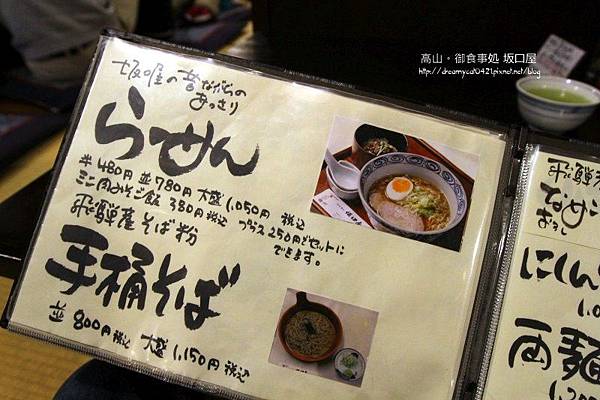 高山・御食事処 坂口屋
http://dreamycat0421.pixnet.net/blog
坂口屋の昔ながらの
あっさり
らーめん
半 480円 並 780円 大盛 1,050円 税込
ミニ肉みそご飯 380円税込 プラス250円でセットに
できます。
飛騨産そば粉
手桶そば
並 800円税込 大盛 1,150円税込
飛騨
なめこ
おろし
にしん
1,0
両麺
1,2